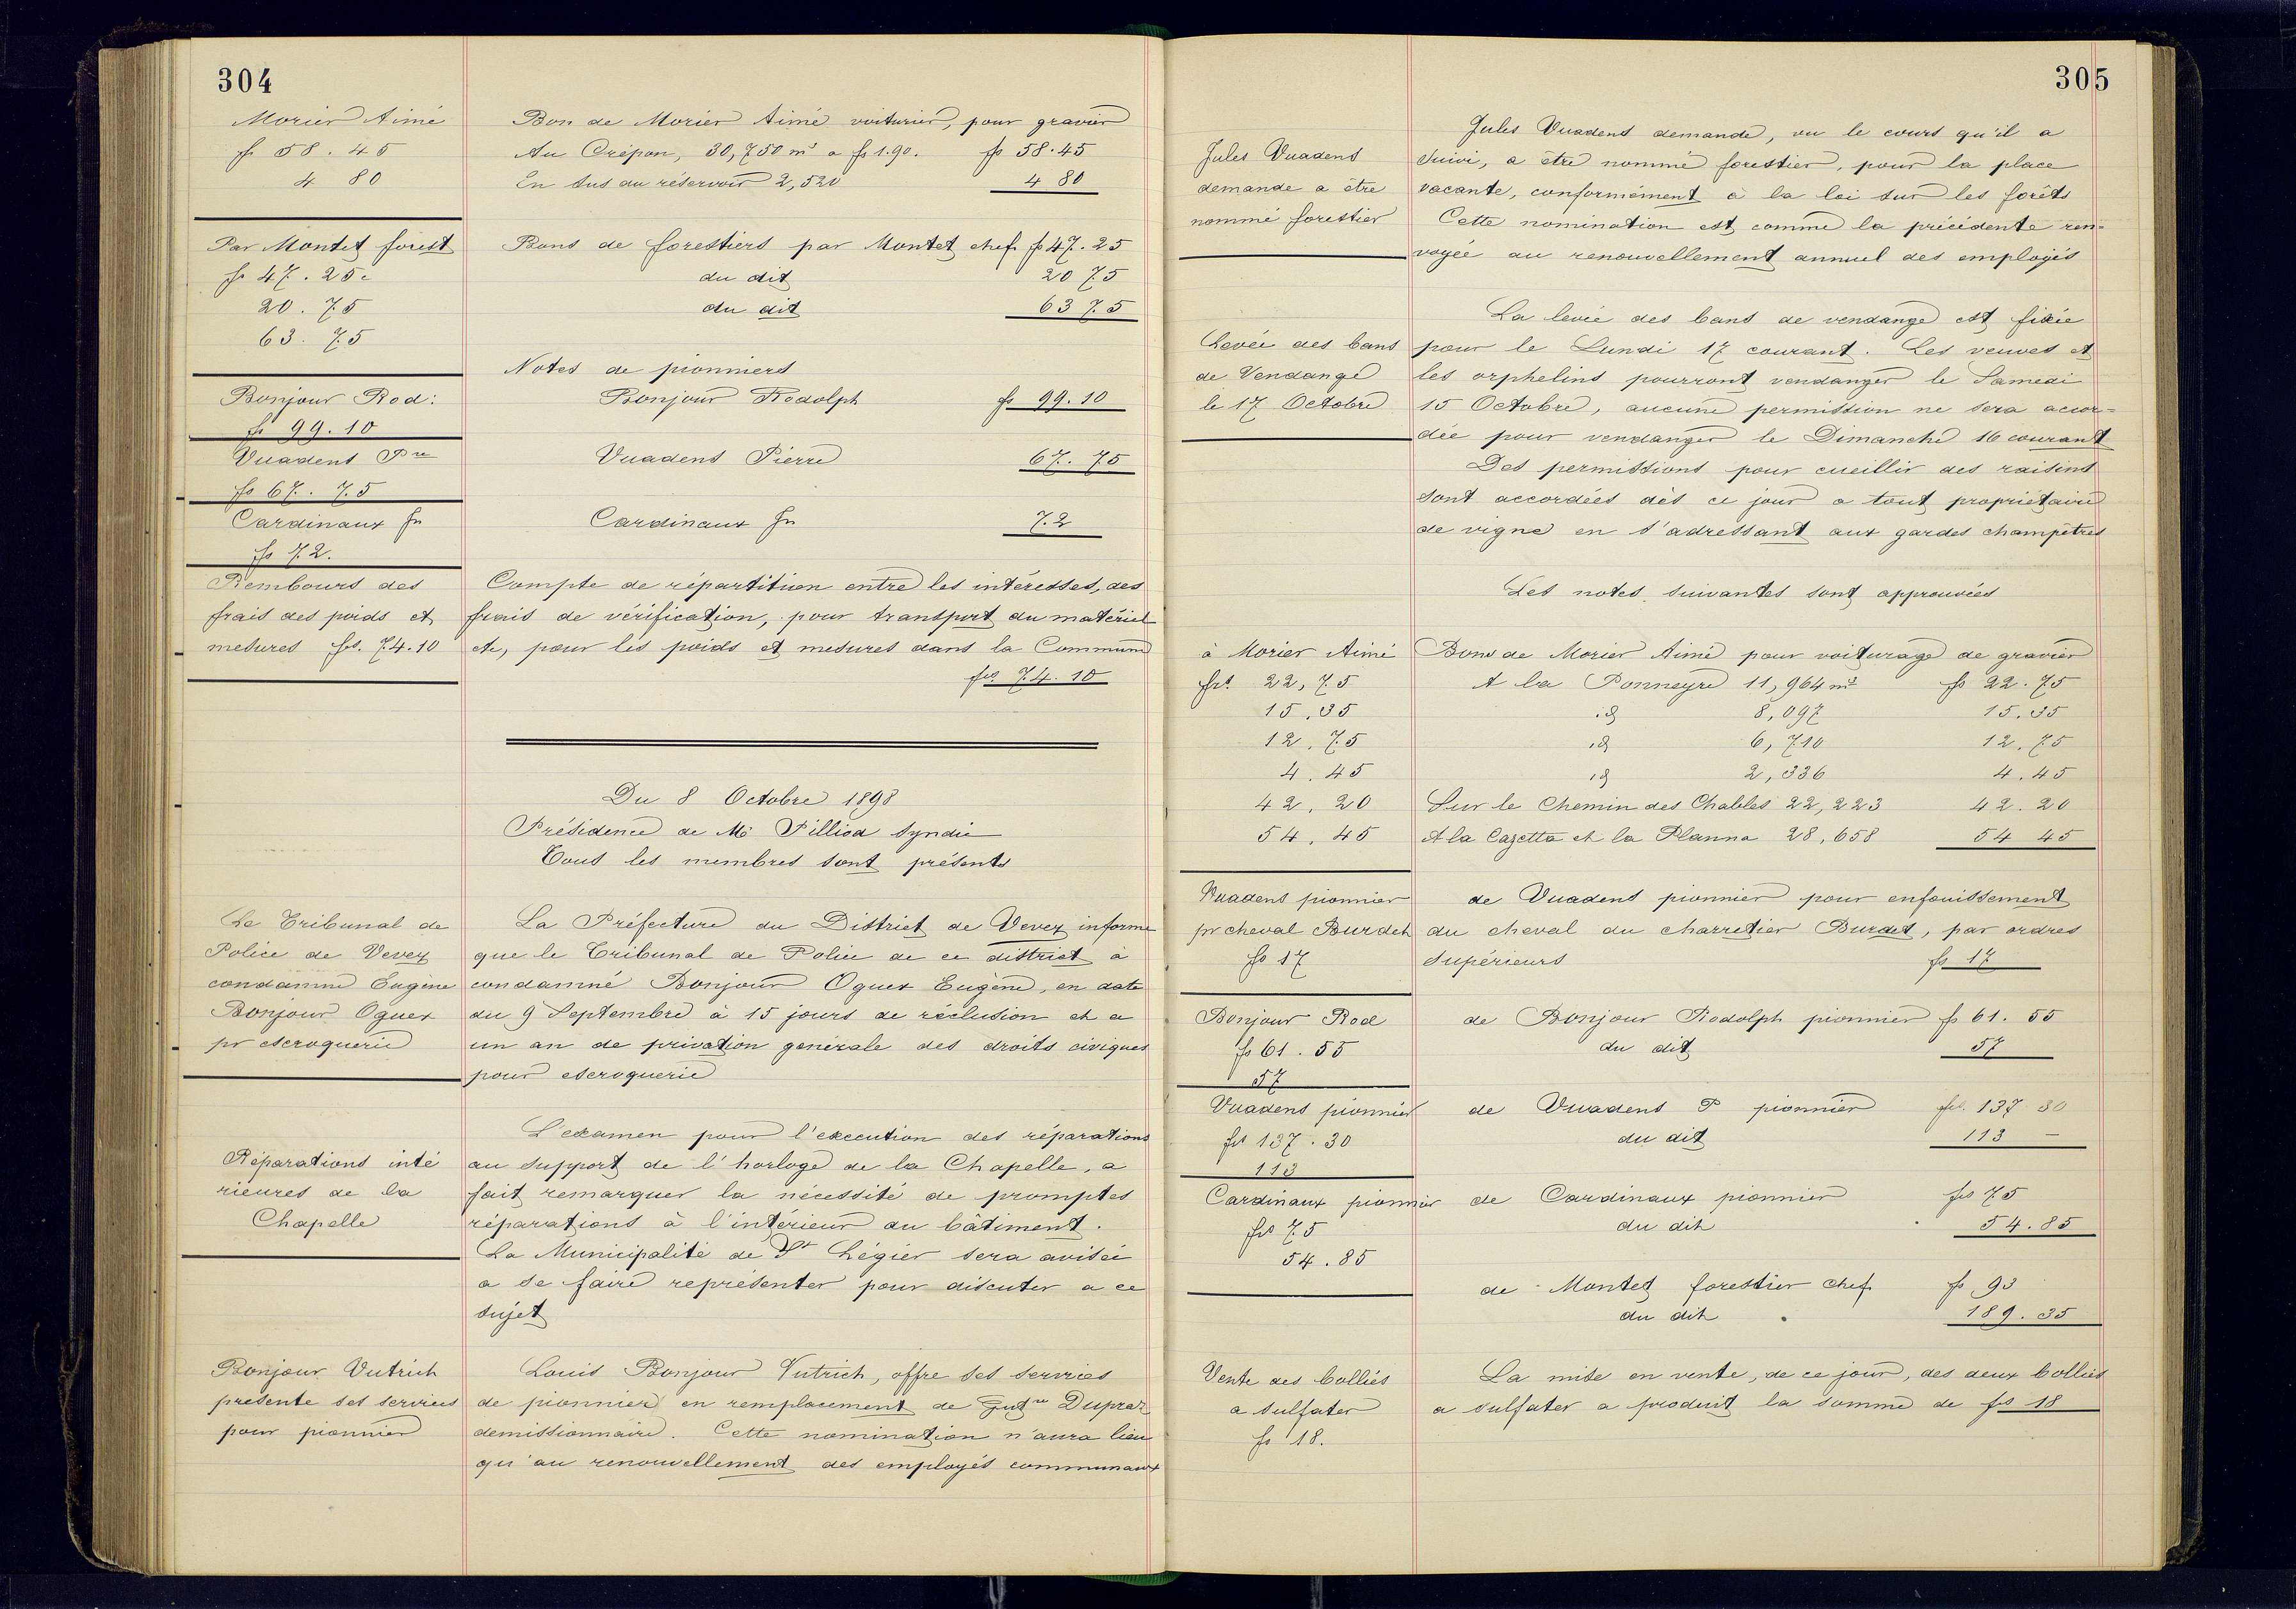 304
Morier Aimé
fr 58.45
4 80
Bon de Morier Aimé voiturier, pour gravier
Au Crépon, 30,750 m³ a fr 1.90. fr 58.45
En sus au réservoir 2,520 4 80
Par Montet forest
fr 47.25c
20.75
63.75
Bons de forestiers par Montet chef fr 47.25
du dit 20 75
du dit 63 75
Notes de pionniers
Bonjour Rod:
fr 99.10
Bonjour Rodolph fr 99.10
Vuadens Pre
fr 67.75
Vuadens Pierre 67.75
Cardinaux Fn
fr 72.
Cardinaux Fn 72
Rembours des
frais des poids et
mesures frs. 74.10
Compte de répartition entre les intéresses, des
frais de vérification, pour transport du matériel
etc, pour les poids et mesures dans la Commune
frs 74.10
Du 8 Octobre 1898
Présidence de Mr Pilliod Syndic
Tous les membres sont présents
Le Tribunal de
Police de Vevey
condamne Eugène
Bonjour Oguey
pr escroquerie
La Préfecture du District de Vevey informe
que le Tribunal de Police de ce district à
condamné Bonjour Oguey Eugène, en date
du 9 Septembre à 15 jours de réclusion et a
un an de privation générale des droits civiques
pour escroquerie
Réparations inté
rieures de la
Chapelle
L'examen pour l'execution des réparations
au support de l'horloge de la Chapelle, a
fait remarquer la nécessité de promptes
réparations à l'intérieur du bâtiment.
La Municipalité de St Légier sera avisée
a se faire représenter pour discuter a ce
sujet
Bonjour Vutrich
presente ses services
pour pionnier
Louis Bonjour Vutrich, offre ses services
de pionnier en remplacement de Duprez
demissionnaire. Cette nomination n'aura lieu
qu'au renouvellement des employés communaux
305
Jules Vuadens
demande a être
nommé forestier
Jules Vuadens demande, vu le cours qu'il a
suivi, a être nommé forestier, pour la place
vacante, conformément à la loi sur les forêts
Cette nomination est comme la précédente ren=
voyée au renouvellement annuel des employés
Levée des bans
de Vendange
le 17 Octobre
La levée des bans de vendange est fixée
pour le Lundi 17 courant. Les veuves et
les orphelins pourront vendanger le Samedi
15 Octobre, aucune permission ne sera accor=
dée pour vendanger le Dimanche 16 courant
Des permissions pour cueillir des raisins
sont accordées dès ce jour a tout propriétaire
de vigne en s'adressant aux gardes champêtres
Les notes suivantes sont approuvées
à Morier Aimé
frs. 22,75
15.35
12.75
4.45
42.20
54.45
Bons de Morier Aimé pour voiturage de gravier
A la Ponneyre 11,964 m³ fr 22.75
id 8,097 15.35
id 6,710 12.75
id 2,336 4.45
Sur le Chemin des Chables 22,223 42.20
A la Cazetta et la Planna 28,658 54 45
Vuadens pionnier
pr cheval Burdet
fr 17
de Vuadens pionnier pour enfouissement
du cheval du charretier Burdet, par ordres
supérieurs fr 17
Bonjour Rod
fr 61.55
57
de Bonjour Rodolph pionnier fr 61.55
du dit 57
Vuadens pionnier
frs 137.30
113
de Vuadens P pionnier frs. 137 30
du dit 113 —
Cardinaux pionnier
frs 75
54.85
de Cardinaux pionnier frs 75
du dit 54.85
de Montet forestier chef fr 93
du dit 189.35
Vente des bolliés
a sulfater
fr 18.
La mise en vente, de ce jour, des deux bolliés
a sulfater a produit la somme de frs 18